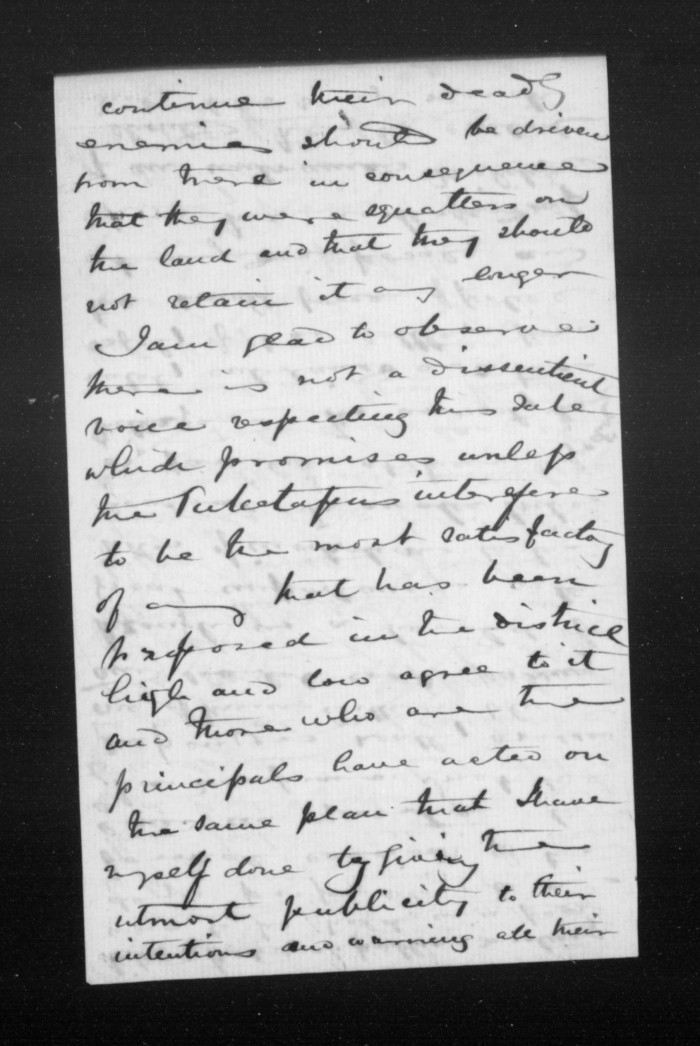 continue their deadly
enemies should be driven
from there in consequence
that they were squatters on
the land and that they should
not retain it any longer
I am glad to observe
there is not a dissentient
voice respecting this sale
which promises unless
the Puketapus interfere
to be the most satisfactory
of any that has been
proposed in the district
high and low agree to it
and those who are the
principals have acted on
the same plan that I have
myself done by giving the
utmost publicity to their
intentions and warning all their